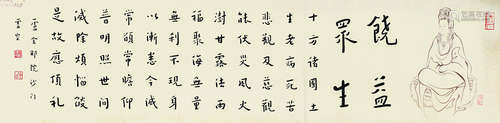 饒益
眾生
十方諸國土
生老病死苦
悲觀及慈觀
能伏災風火
澍甘露法雨
福聚海無量
無剎不現身
以漸悉令滅
常願常瞻仰
普明照世間
滅除煩惱燄
是故應頂礼